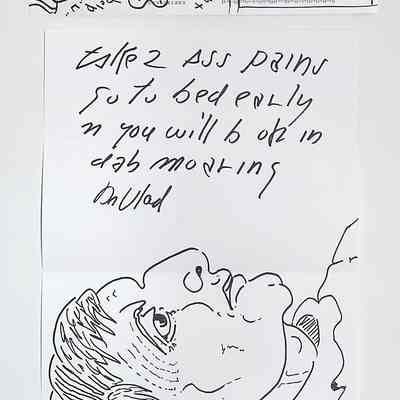 take 2 ass pains
go to bed early
n you will b ok in
dab moaring
Dr Vlad